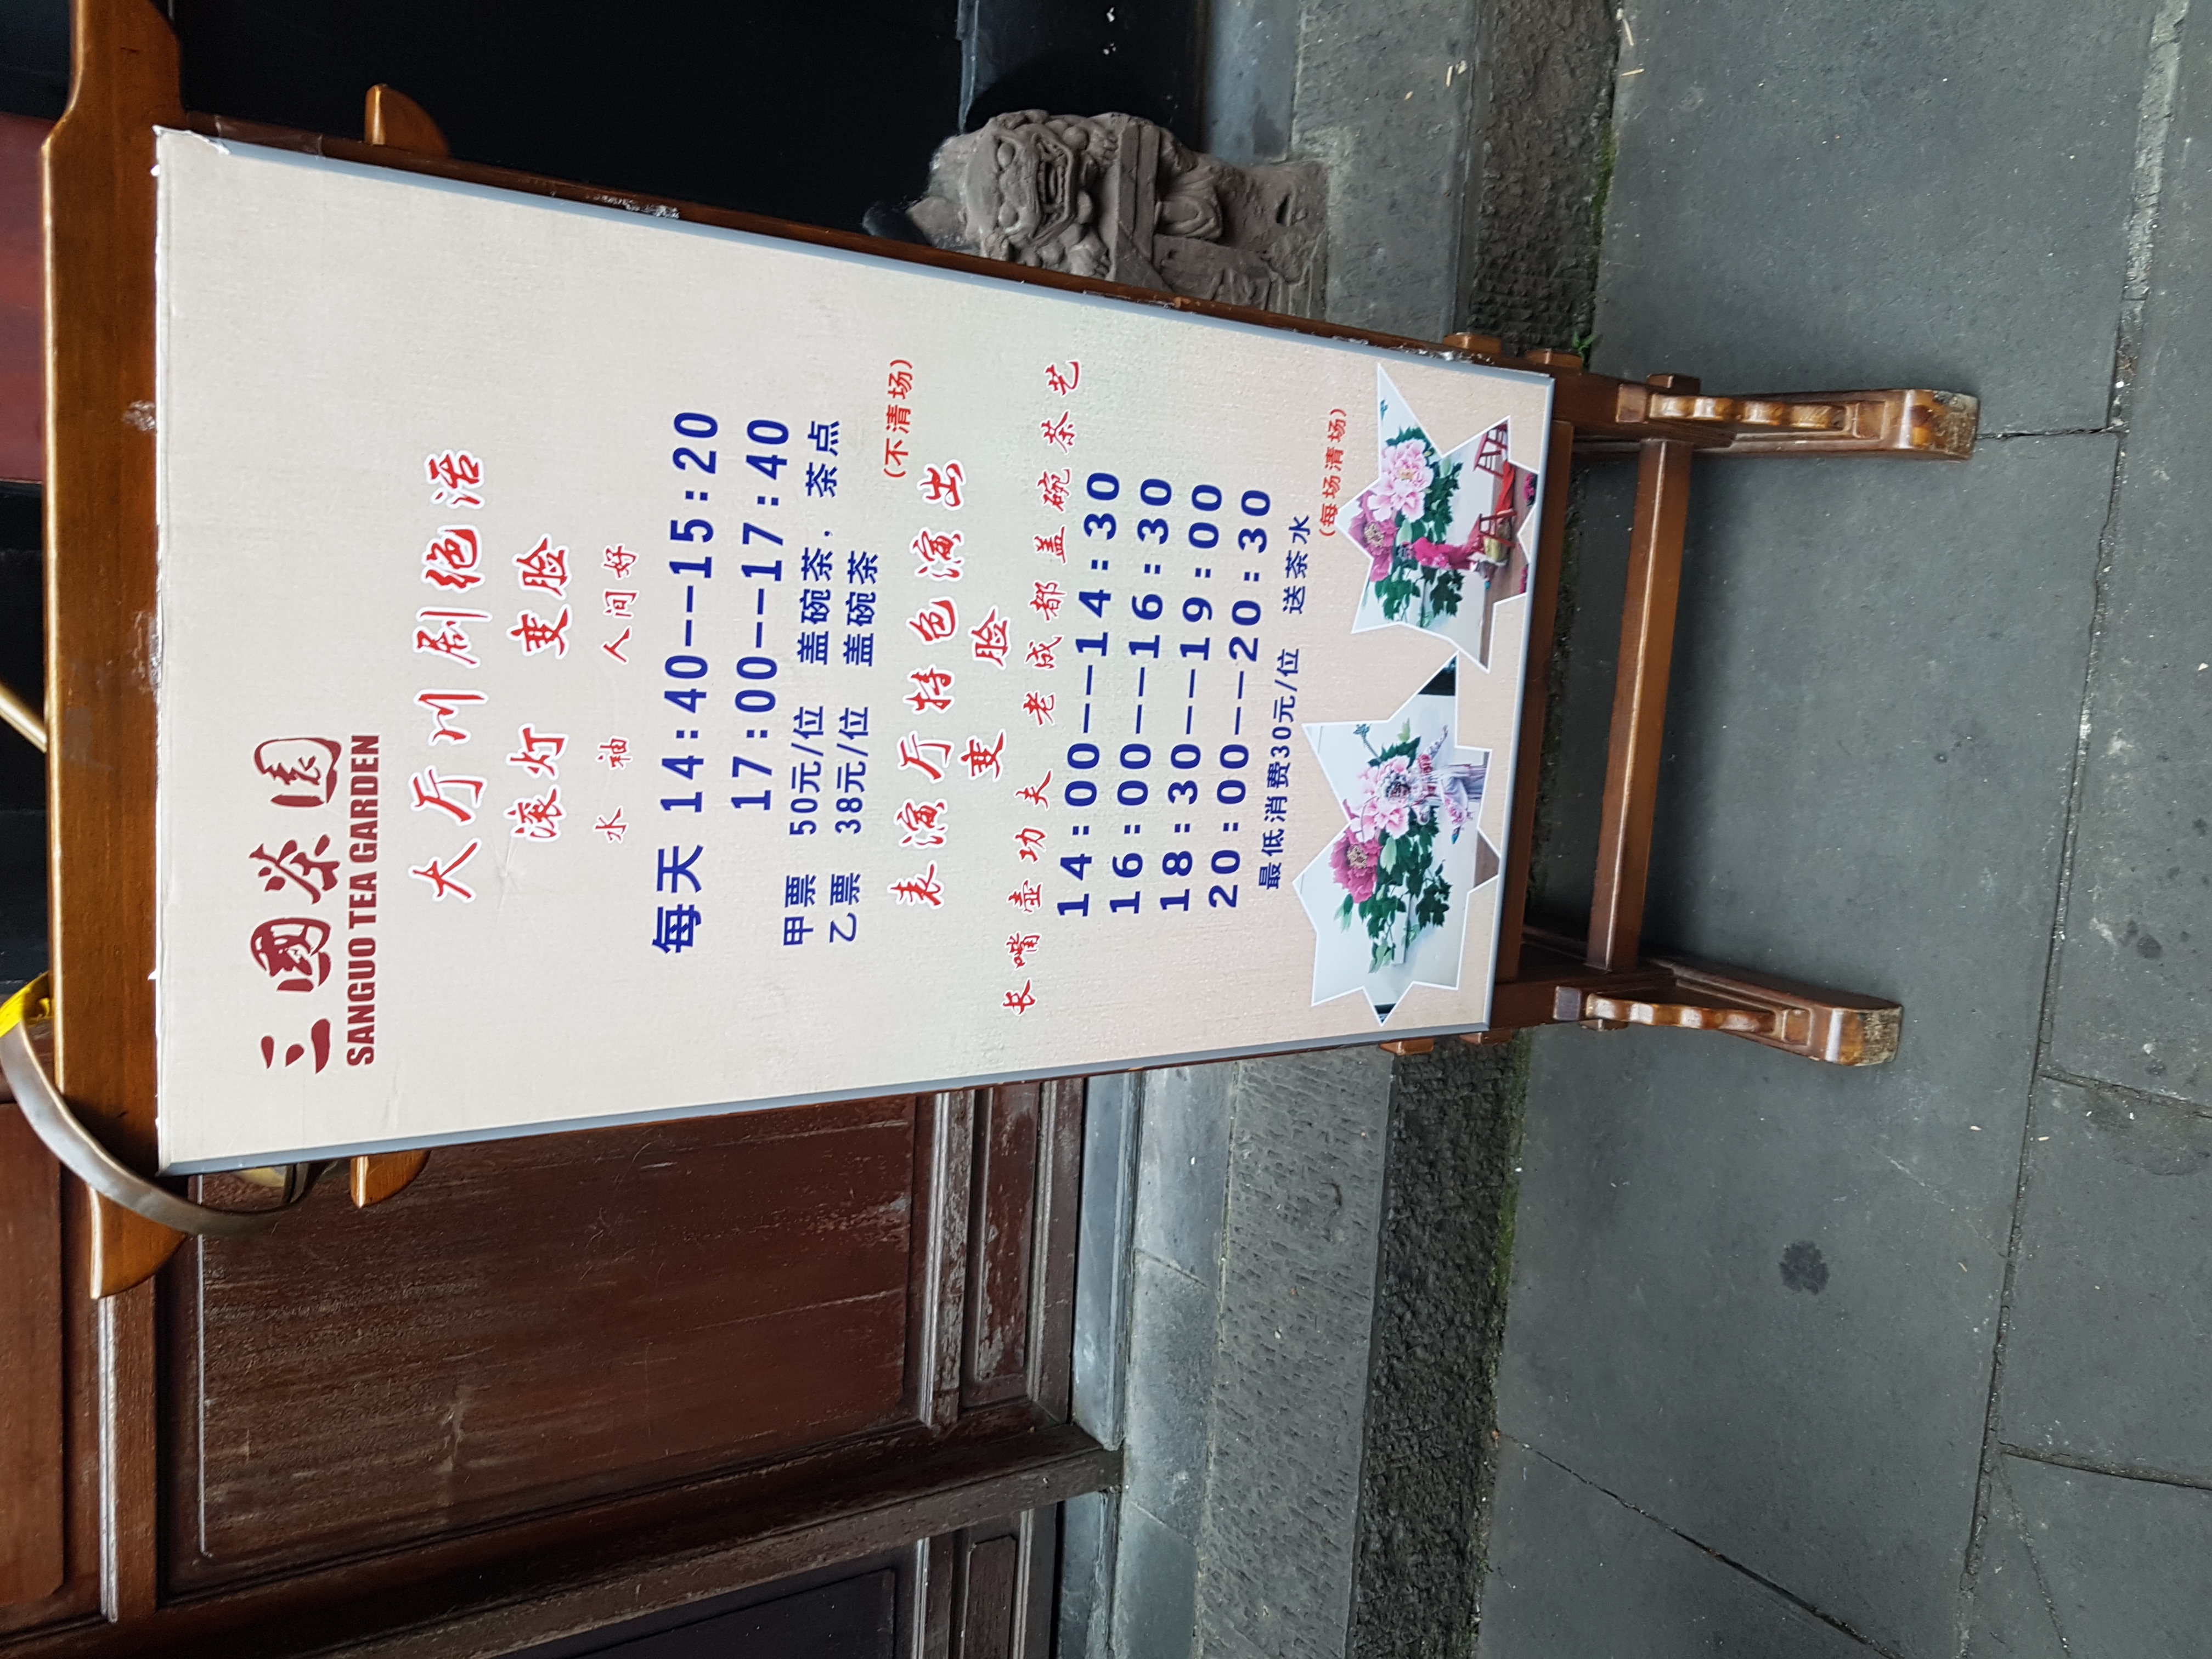 三國茶園
SANGUO TEA GARDEN
大厅川剧绝活
滚灯 变脸
水袖 人间好
每天 14:40——15:20
17:00——17:40
甲票 50元/位 盖碗茶，茶点
乙票 38元/位 盖碗茶
(不清场)
表演厅特色演出
变脸
长嘴壶功夫 老成都盖碗茶艺
14:00——14:30
16:00——16:30
18:30——19:00
20:00——20:30
最低消费30元/位 送茶水
(每场清场)